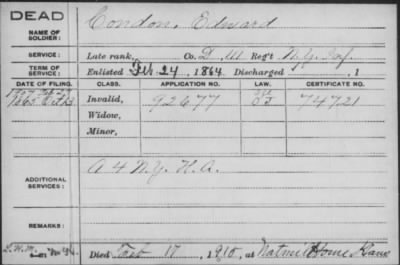 DEAD
NAME OF SOLDIER: Condon, Edward
SERVICE: Late rank, Co. D, 111 Reg't N.Y. Inf.
TERM OF SERVICE: Enlisted Feb 24, 1864 Discharged , 1
DATE OF FILING. CLASS. APPLICATION NO. LAW. CERTIFICATE NO.
1865 Oct 23 Invalid, 92677 74721
Widow,
Minor,
ADDITIONAL SERVICES: A 4 N.Y. H.A.
REMARKS:
Died Feb 17, 1910, at Natmil Home Kans